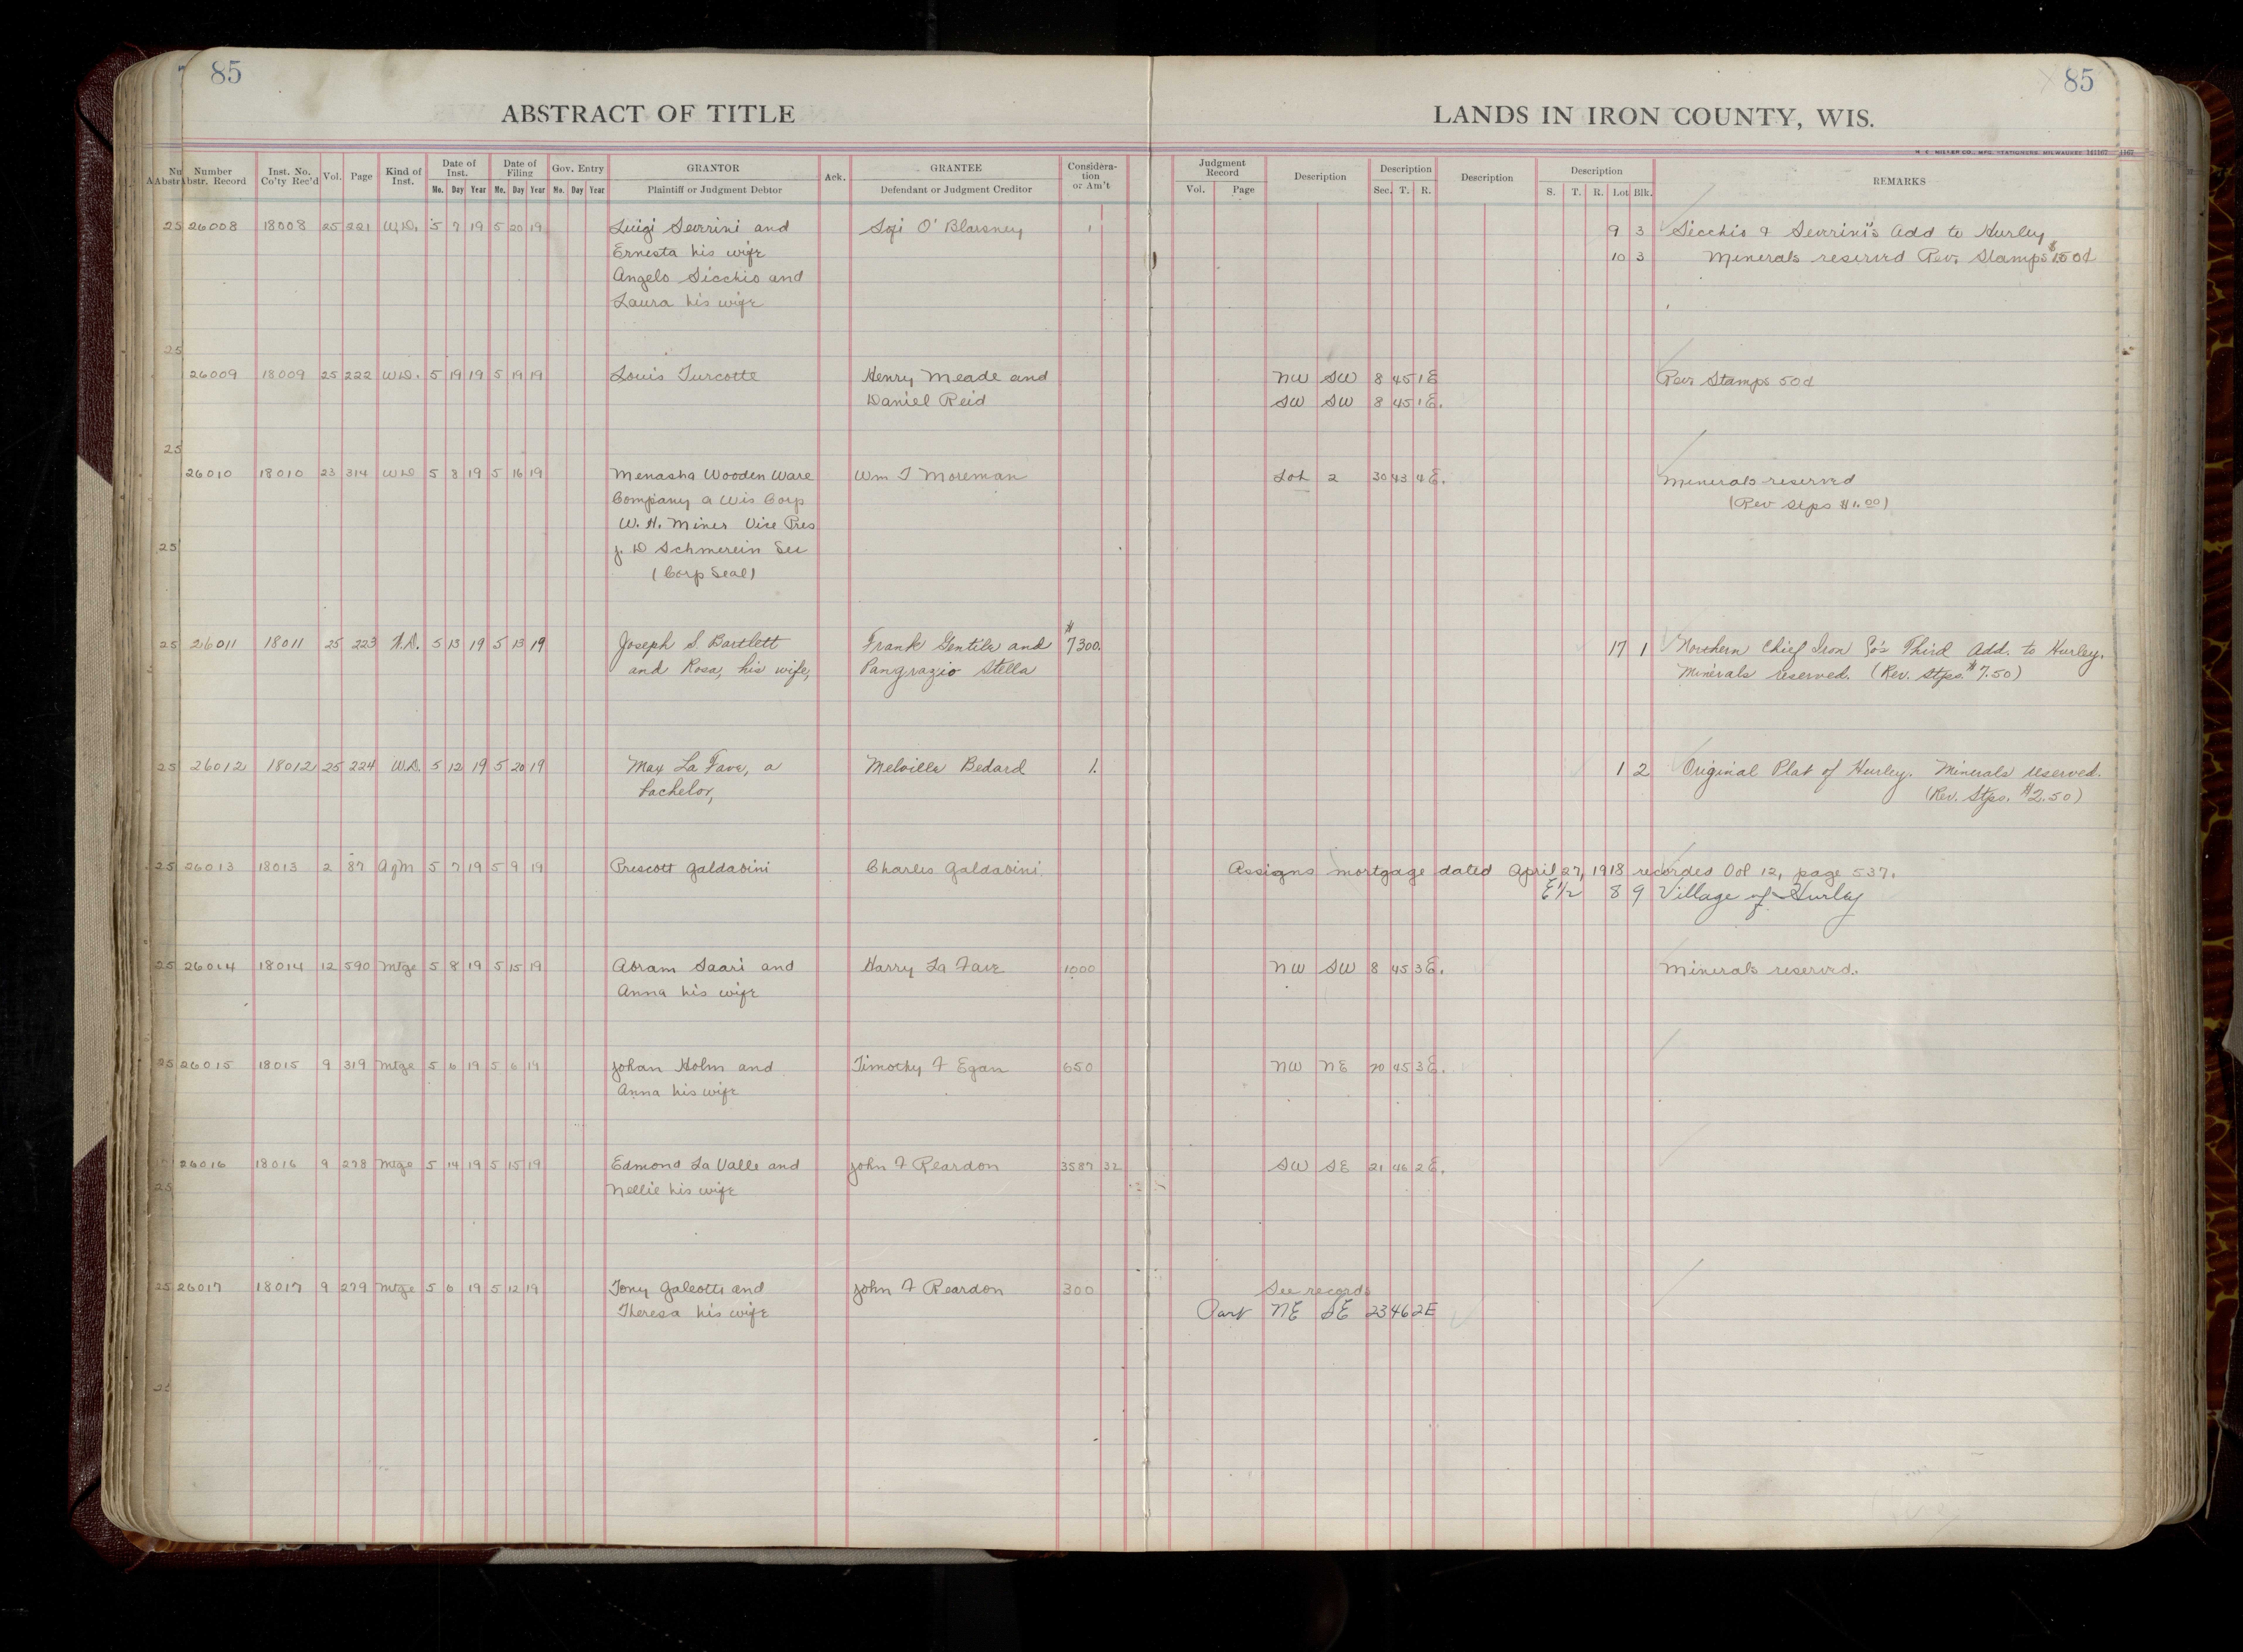 85
85
ABSTRACT OF TITLE
LANDS IN IRON COUNTY, WIS.
H. C. MILLER CO., MFG. STATIONERS, MILWAUKEE
Number Abstr. Record Inst. No. Co'ty Rec'd Vol. Page Kind of Inst. Date of Inst. Date of Filing Gov. Entry GRANTOR Ack. GRANTEE Considera-tion or Am't Judgment Record Description Description Description Description REMARKS
Mo. Day Year Mo. Day Year Mo. Day Year Plaintiff or Judgment Debtor Defendant or Judgment Creditor Vol. Page Sec. T. R. S. T. R. Lot Blk.
26008 18008 25 221 W.D. 5 7 19 5 20 19 Luigi Severini and 1 9 3 Sicchio & Severini's Add to Hurley
Ernesta his wife 10 3 Minerals reserved Rev. Stamps
Angelo Sicchio and
Laura his wife
26009 18009 25 222 W.D. 5 19 19 5 19 19 Louis Turcotte Henry Meade and NW SW 8 45 1E Rev. Stamps 50¢
Daniel Reid SW SW 8 45 1E.
26010 18010 23 314 WD 5 8 19 5 16 19 Menasha Wooden Ware Wm T Moreman Lot 2 30 43 4E. Minerals reserved
Company a Wis Corp (Rev Stps $1.00)
W. H. Miner Vice Pres
J. D Schmerein Sec
(Corp Seal)
26011 18011 25 223 W.D. 5 13 19 5 13 19 Joseph S. Bartlett Frank Gentile and $7300. 17 1 Northern Chief Iron Co's Third Add. to Hurley.
and Rosa, his wife, Pangrazio Stella Minerals reserved. (Rev. Stps. $7.50)
26012 18012 25 224 W.D. 5 12 19 5 20 19 Max La Fave, a Melville Bedard 1. 1 2 Original Plat of Hurley. Minerals reserved.
bachelor, (Rev. Stps. $2.50)
26013 18013 2 87 AgM 5 7 19 5 9 19 Prescott Galdabini Charles Galdabini. Assigns mortgage dated April 27, 1918 recorded Vol 12, page 537.
E 1/2 8 9 Village of Hurley
26014 18014 12 590 Mtge 5 8 19 5 15 19 Abram Saari and Harry La Fave 1000 NW SW 8 45 3E. Minerals reserved.
Anna his wife
26015 18015 9 319 Mtge 5 6 19 5 6 19 Johan Holm and Timothy F Egan 650 NW NE 20 45 3E.
Anna his wife
26016 18016 9 278 Mtge 5 14 19 5 15 19 Edmond La Valle and John F Reardon 3587 32 SW SE 21 46 2E.
Nellie his wife
26017 18017 9 279 Mtge 5 6 19 5 12 19 Tony Galeotti and John F Reardon 300 See records
Theresa his wife Part NE SE 23 46 2E